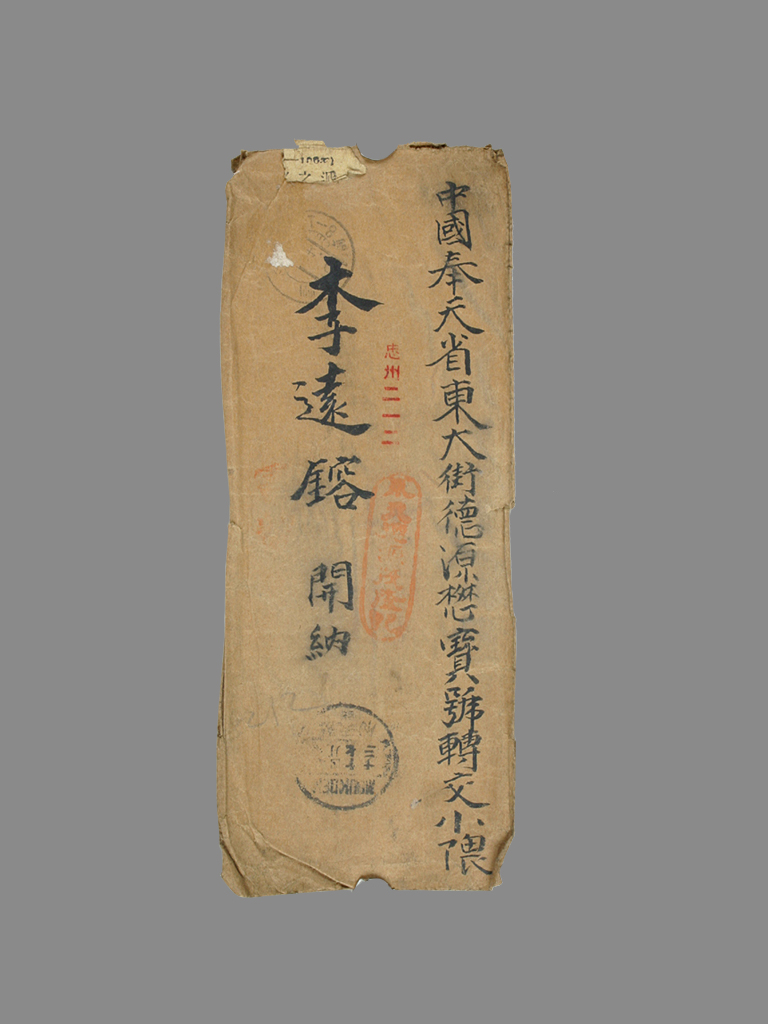 中國奉天省東大街德源懋寶號轉交小隈
忠州二一二
李遠鎔 開納
MOUKDEN